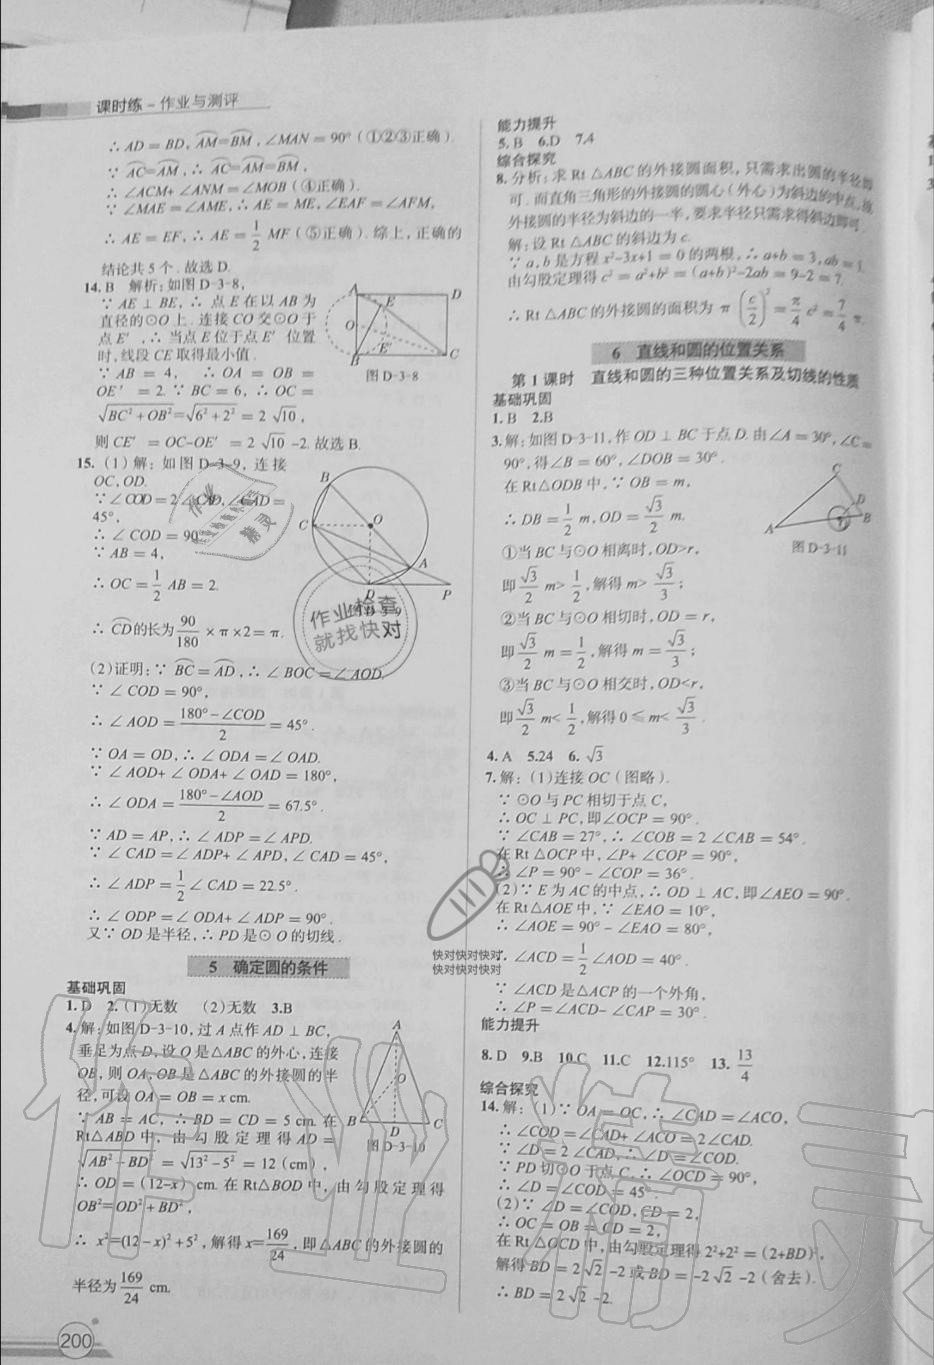 课时练－作业与测评
∴AD＝BD，AM＝BM，∠MAN＝90°（①②③正确）.
∵AC＝AM，∴AC＝AM＝BM，
∴∠ACM+∠ANM＝∠MOB（④正确）.
∵∠MAE＝∠AME，∴AE＝ME，∠EAF＝∠AFM，
∴AE＝EF，∴AE＝1/2 MF（⑤正确）.综上，正确的
结论共5个.故选D.
14.B 解析：如图D-3-8，
∵AE⊥BE，∴点E在以AB为
直径的⊙O上.连接CO交⊙O于
点E′，∴当点E位于点E′位置
时，线段CE取得最小值.
∵AB＝4，∴OA＝OB＝
OE′＝2.∵BC＝6，∴OC＝
√(BC²+OB²)＝√(6²+2²)＝2√10，
则CE′＝OC-OE′＝2√10-2.故选B.
A
D
E
O
E′
B
C
图D-3-8
15.（1）解：如图D-3-9，连接
OC，OD.
∵∠COD＝2∠CAD，∠CAD＝
45°，
∴∠COD＝90°
∵AB＝4，
∴OC＝1/2 AB＝2.
∴CD的长为90/180×π×2＝π.
B
C
O
A
D
P
（2）证明：∵BC＝AD，∴∠BOC＝∠AOD.
∵∠COD＝90°，
∴∠AOD＝(180°-∠COD)/2＝45°.
∵OA＝OD，∴∠ODA＝∠OAD.
∵∠AOD+∠ODA+∠OAD＝180°，
∴∠ODA＝(180°-∠AOD)/2＝67.5°.
∵AD＝AP，∴∠ADP＝∠APD.
∵∠CAD＝∠ADP+∠APD，∠CAD＝45°，
∴∠ADP＝1/2∠CAD＝22.5°.
∴∠ODP＝∠ODA+∠ADP＝90°.
又∵OD是半径，∴PD是⊙O的切线.
5 确定圆的条件
基础巩固
1.D 2.（1）无数 （2）无数 3.B
4.解：如图D-3-10，过A点作AD⊥BC，
垂足为点D，设O是△ABC的外心，连接
OB，则OA，OB是△ABC的外接圆的半
径，可设OA＝OB＝x cm.
∵AB＝AC，∴BD＝CD＝5 cm.在
Rt△ABD中，由勾股定理得AD＝
√(AB²-BD²)＝√(13²-5²)＝12（cm），
∴OD＝（12-x）cm.在Rt△BOD中，由勾股定理得
OB²=OD²+BD²，
∴x²=(12-x)²+5²，解得x=169/24，即△ABC的外接圆的
半径为169/24 cm.
A
O
B
D
C
图D-3-10
200
能力提升
5.B 6.D 7.4
综合探究
8.分析：求Rt△ABC的外接圆面积，只需求出圆的半径即
可.而直角三角形的外接圆的圆心（外心）为斜边的中点，故
外接圆的半径为斜边的一半，要求半径只需求得斜边即可.
解：设Rt△ABC的斜边为c.
∵a，b是方程x²-3x+1＝0的两根，∴a+b＝3，ab＝1.
由勾股定理得c²＝a²+b²＝(a+b)²-2ab＝9-2＝7.
∴Rt△ABC的外接圆的面积为π(c/2)²＝π/4 c²＝7/4 π.
6 直线和圆的位置关系
第1课时 直线和圆的三种位置关系及切线的性质
基础巩固
1.B 2.B
3.解：如图D-3-11，作OD⊥BC于点D.由∠A＝30°，∠C＝
90°，得∠B＝60°，∠DOB＝30°.
在Rt△ODB中，∵OB＝m，
∴DB＝1/2 m，OD＝√3/2 m.
①当BC与⊙O相离时，OD>r，
即√3/2 m>1/2，解得m>√3/3；
②当BC与⊙O相切时，OD＝r，
即√3/2 m＝1/2，解得m＝√3/3；
③当BC与⊙O相交时，OD<r，
即√3/2 m<1/2，解得0≤m<√3/3.
C
D
A
B
图D-3-11
4.A 5.24 6.√3
7.解：（1）连接OC（图略）.
∵⊙O与PC相切于点C，
∴OC⊥PC，即∠OCP＝90°.
∵∠CAB＝27°，∴∠COB＝2∠CAB＝54°.
在Rt△OCP中，∠P+∠COP＝90°，
∴∠P＝90°-∠COP＝36°.
（2）∵E为AC的中点，∴OD⊥AC，即∠AEO＝90°.
在Rt△AOE中，∵∠EAO＝10°，
∴∠AOE＝90°-∠EAO＝80°，
∴∠ACD＝1/2∠AOD＝40°.
∵∠ACD是△ACP的一个外角，
∴∠P＝∠ACD-∠CAP＝30°.
能力提升
8.D 9.B 10.C 11.C 12.115° 13.13/4
综合探究
14.解：（1）∵OA＝OC，∴∠CAD＝∠ACO，
∴∠COD＝∠CAD+∠ACO＝2∠CAD.
∵∠D＝2∠CAD，∴∠D＝∠COD.
∵PD切⊙O于点C，∴∠OCD＝90°，
∴∠D＝∠COD＝45°.
（2）∵∠D＝∠COD，CD＝2，
∴OC＝OB＝CD＝2，
在Rt△OCD中，由勾股定理得2²+2²＝(2+BD)²，
解得BD＝2√2-2或BD＝-2√2-2（舍去）.
∴BD＝2√2-2.
作业检查
就找快对
快对快对快对
快对快对快对
作业
精灵
作业